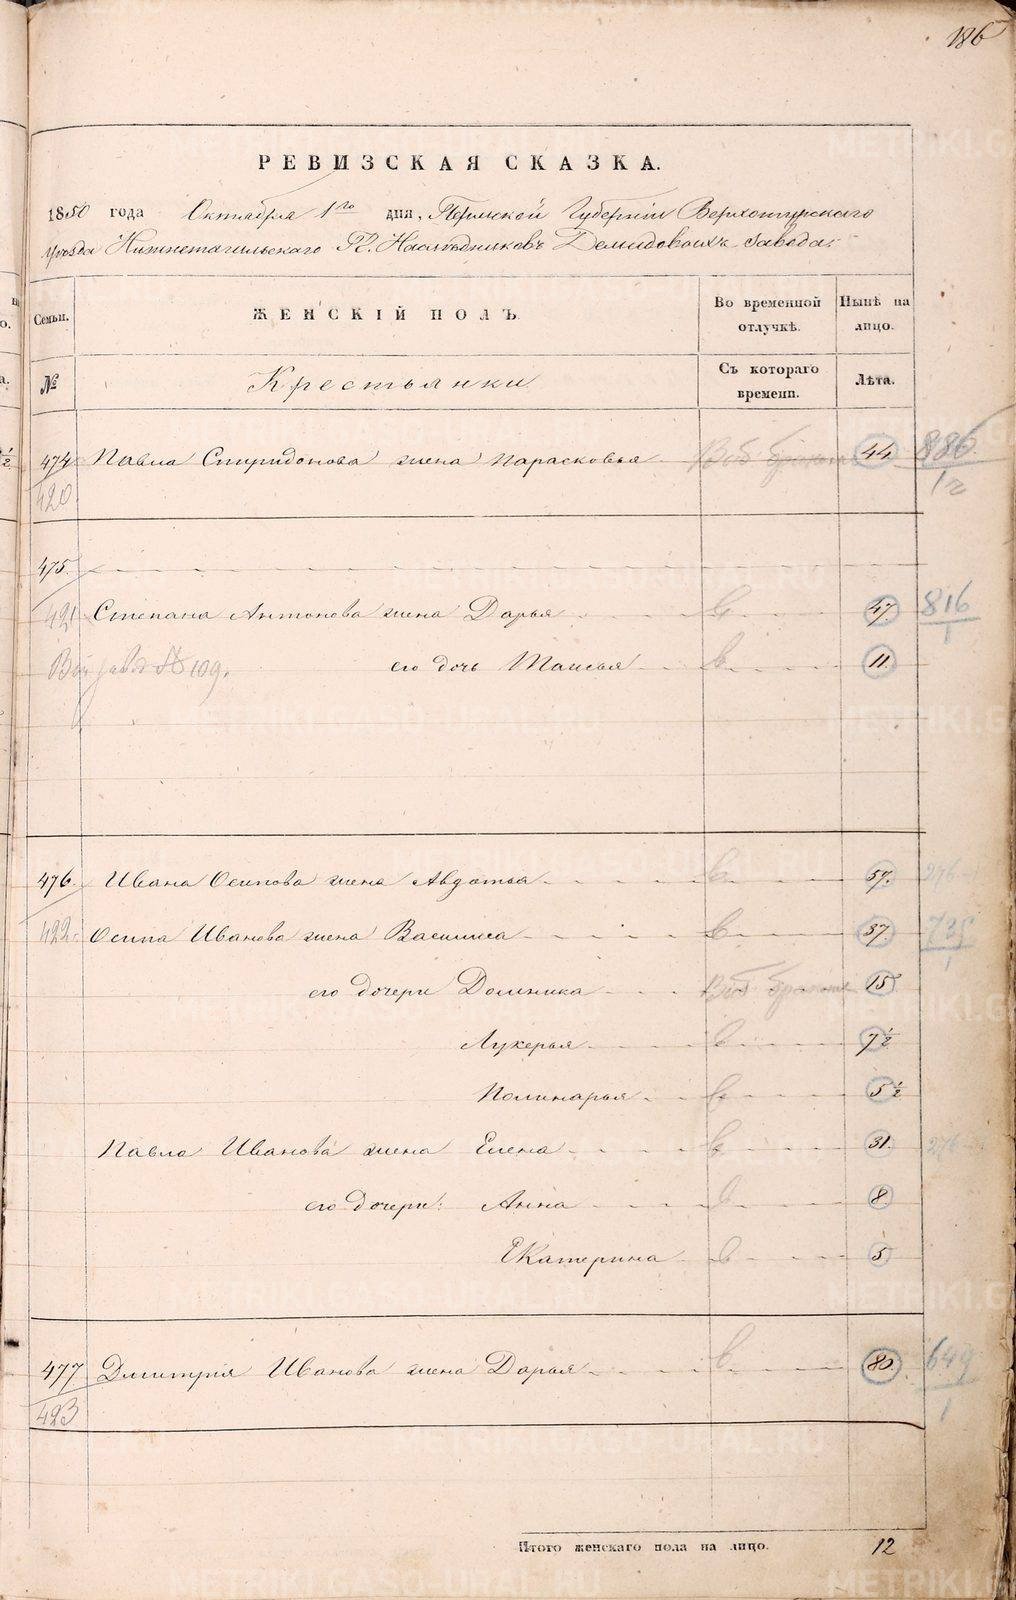 186
РЕВИЗСКАЯ СКАЗКА.
1850 года Октября 1го дня, Пермской Губернiи Верхотурскаго
уѣзда Нижнетагильскаго Гг. Наслѣдниковъ Демидовыхъ завода.
Семьи. ЖЕНСКIЙ ПОЛЪ. Во временной отлучкѣ. Нынѣ на лицо.
№ Крестьянки Съ котораго времени. Лѣта.
474 Павла Спиридонова жена Парасковья 44 886
420 12
475.
421 Степана Антонова жена Дарья в 47. 816
1
№ 109. его дочь Таисья в 11
476. Ивана Осипова жена Авдотья в 57. 276
422. Осипа Иванова жена Василиса в 37 735
1
его дочери Домника 15
Лукерья в 7 1/2
Полинарья в 5 1/2
Павла Иванова жена Елена в 31. 276
его дочери: Анна в 8
Екатерина в 5
477 Дмитрiя Иванова жена Дарья в 80. 649
423 1
Итого женскаго пола на лицо. 12
METRIKI.GASO-URAL.RU